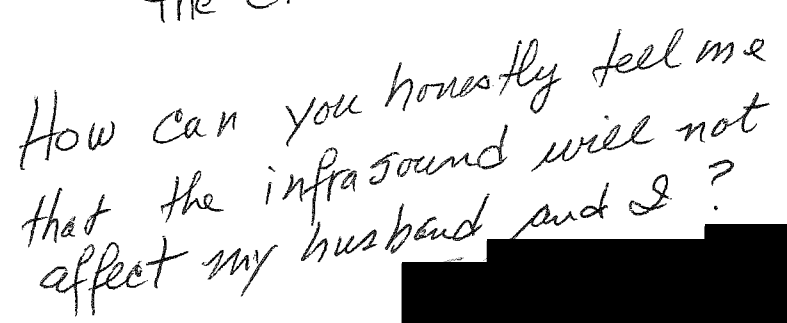 The
How can you honestly teel me
that the infrasound will not
affect my husband and I ?